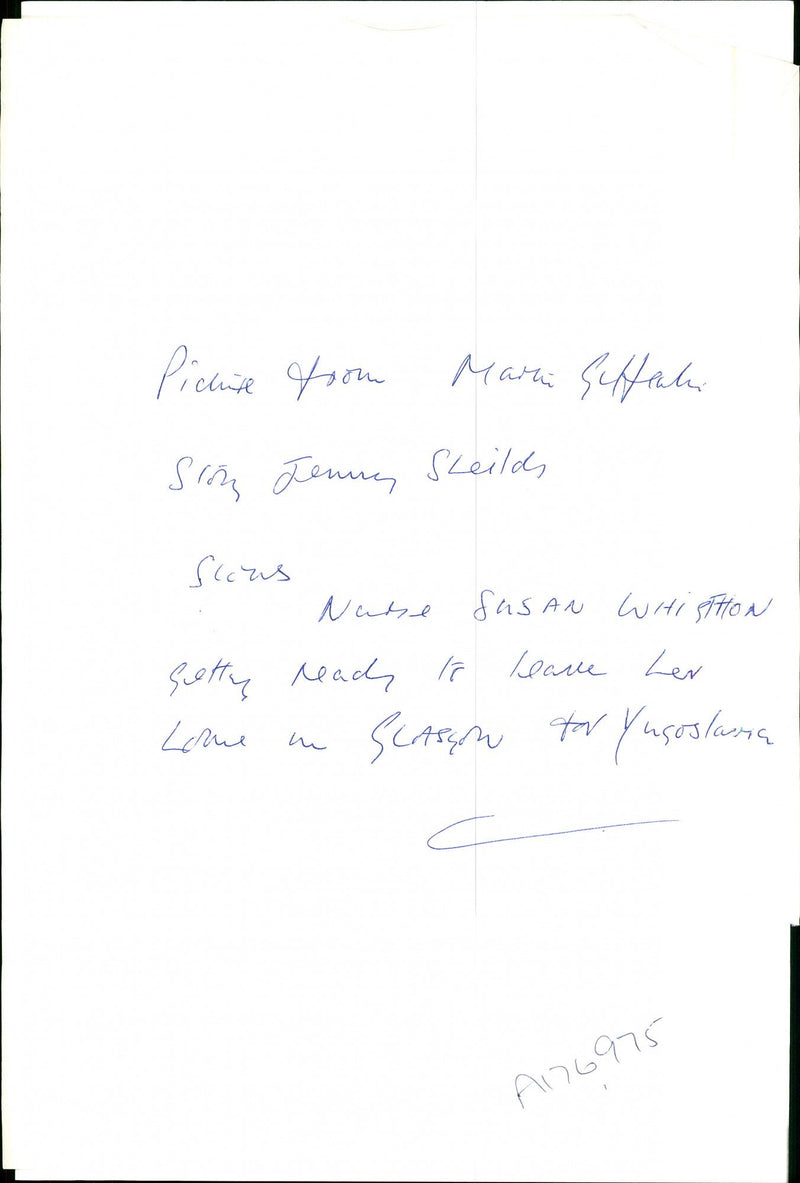 Picture from Martin
Story Jenny Sheilds
Shows
Nurse SUSAN WHIGTHON
getting ready to leave her
home in GLASGOW for Yugoslavia
A176975